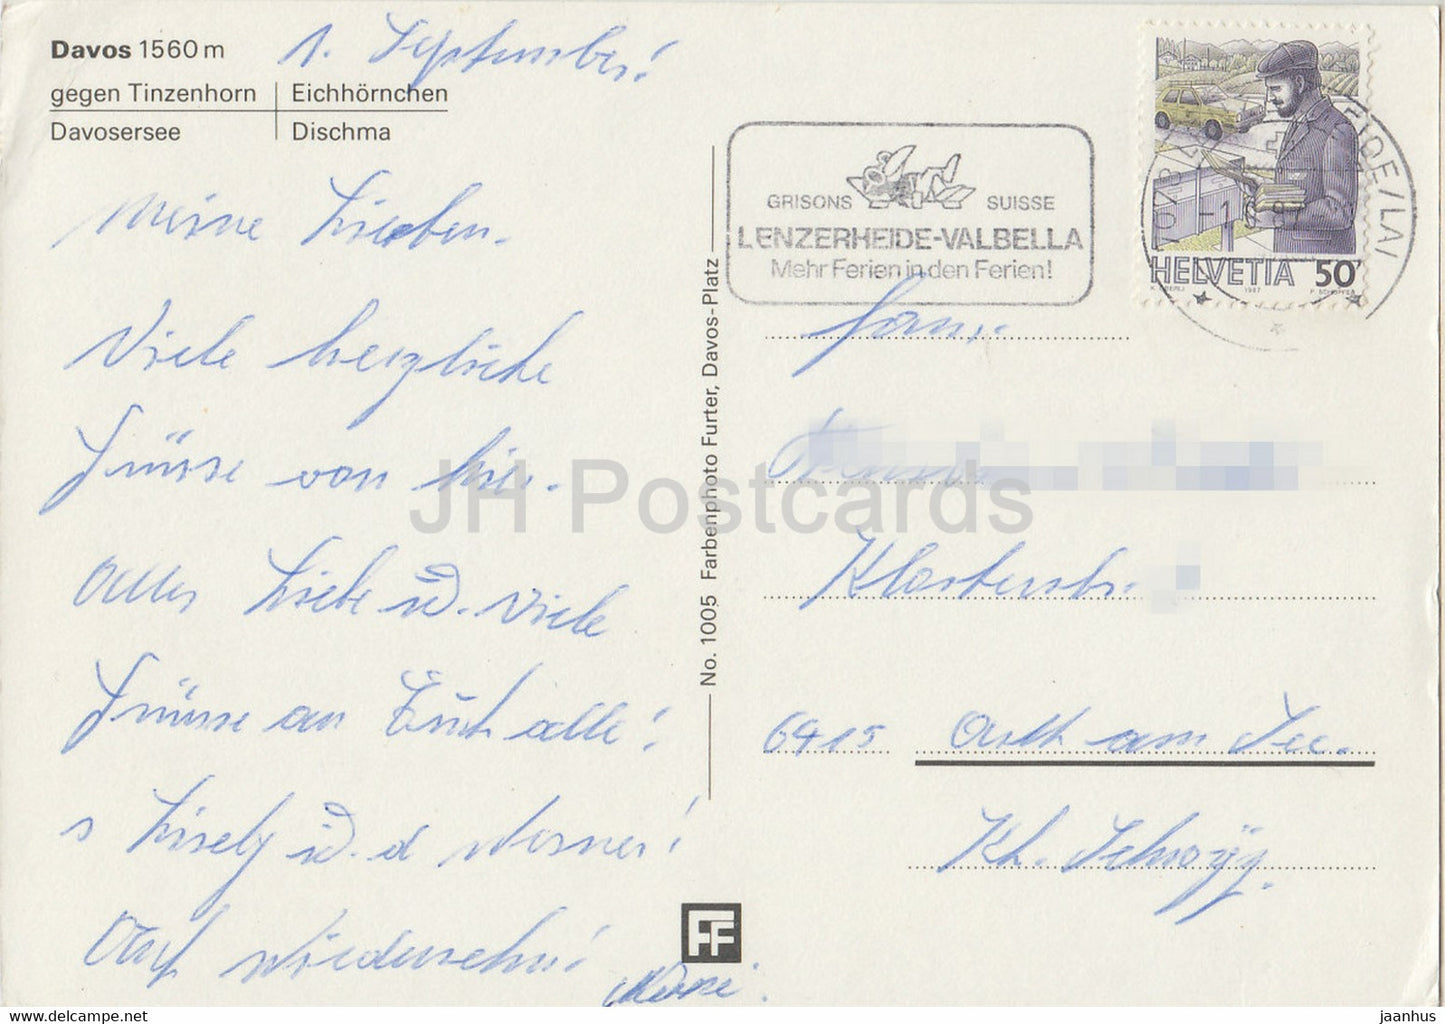 Davos 1560 m
gegen Tinzenhorn
Davosersee
Eichhörnchen
Dischma
1. September!
meine Lieben.
Viele herzliche
Grüsse von hier.
alles Liebe u. viele
Grüsse an Euch alle!
s Lisely u. d Werner!
Auf Wiedersehn!
No. 1005 Farbenphoto Furter, Davos-Platz
FF
GRISONS SUISSE
LENZERHEIDE-VALBELLA
Mehr Ferien in den Ferien!
HELVETIA 50
1987
EIDE/LAI
Fam.
Klosterstr.
6415 Arth am See.
Kt. Schwyz.
JH Postcards
jaanhus